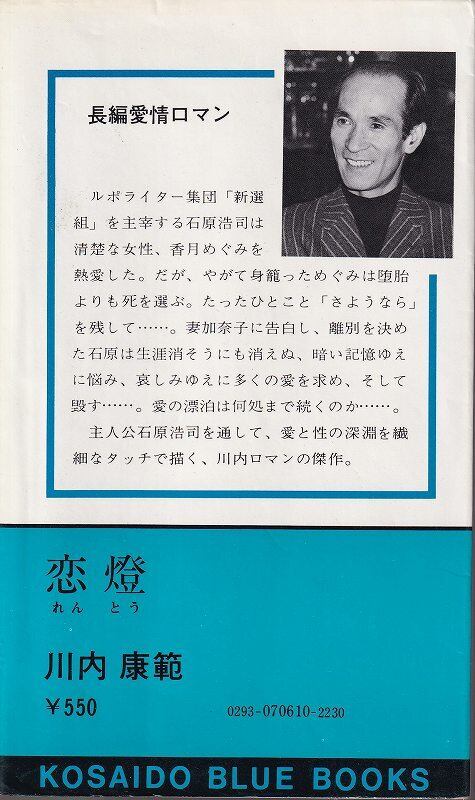 長編愛情ロマン
ルポライター集団「新選
組」を主宰する石原浩司は
清楚な女性、香月めぐみを
熱愛した。だが、やがて身籠っためぐみは堕胎
よりも死を選ぶ。たったひとこと「さようなら」
を残して……。妻加奈子に告白し、離別を決め
た石原は生涯消そうにも消えぬ、暗い記憶ゆえ
に悩み、哀しみゆえに多くの愛を求め、そして
毀す……。愛の漂泊は何処まで続くのか……。
主人公石原浩司を通して、愛と性の深淵を繊
細なタッチで描く、川内ロマンの傑作。
恋燈
れんとう
川内 康範
¥550
0293-070610-2230
KOSAIDO BLUE BOOKS